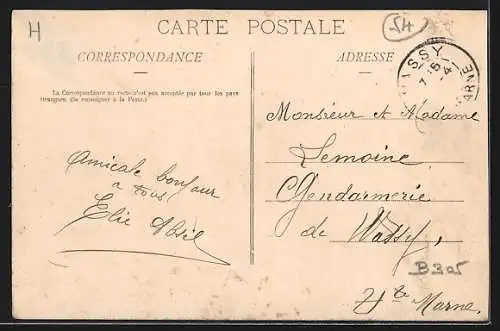 H
CARTE POSTALE
54
CORRESPONDANCE
La Correspondance au recto n'est pas acceptée par tous les pays
étrangers (Se renseigner à la Poste.)
ADRESSE
WASSY
7 15
4
MARNE
Amicale bonjour
à tous
Elie
Monsieur et Madame
Lemoine
Gendarmerie
de Wassy,
Hte Marne.
B305